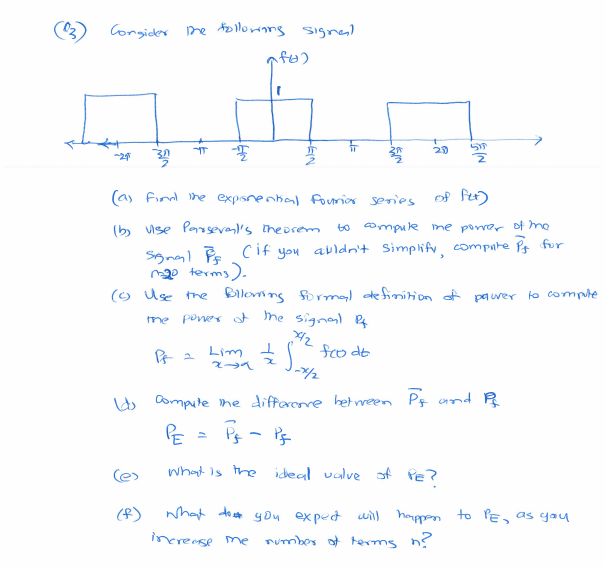 (Q3) Consider the following signal
f(t)
1
-2π 3π/2 -π -π/2 π/2 π 3π/2 2π 5π/2
(a) Find the exponential fourier series of f(t)
(b) Use Parseval's theorem to compute the power of the
signal P̅f (if you couldn't simplify, compute P̅f for
n=20 terms).
(c) Use the following formal definition of power to compute
the power of the signal Pf
Pf = Lim x→∞ 1/x ∫_{-x/2}^{x/2} f(t) dt
(d) Compute the difference between P̅f and Pf
PE = P̅f - Pf
(e) What is the ideal value of PE?
(f) What do you expect will happen to PE, as you
increase the number of terms n?